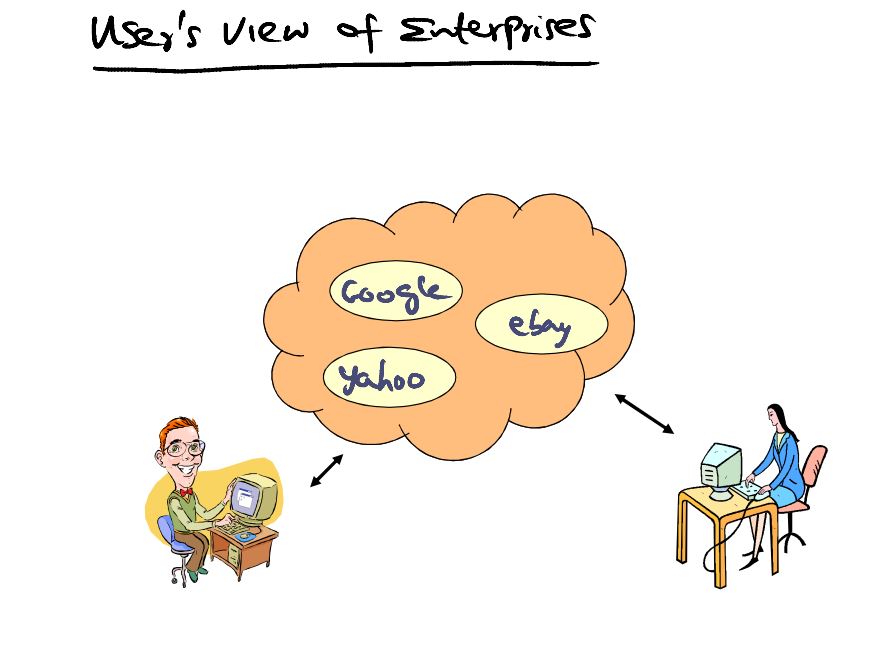 User's View of Enterprises
Google
ebay
Yahoo